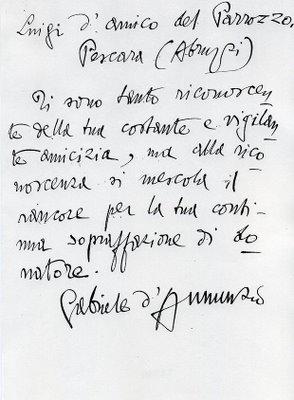 Luigi d'amico del Parrozzo.
Pescara (Abruzzi)
Ti sono tanto riconoscen
te della tua costante e vigilan
te amicizia, ma alla rico
noscenza si mescola il
rancore per la tua conti-
nua sopraffazione di do
natore.
Gabriele d'Annunzio